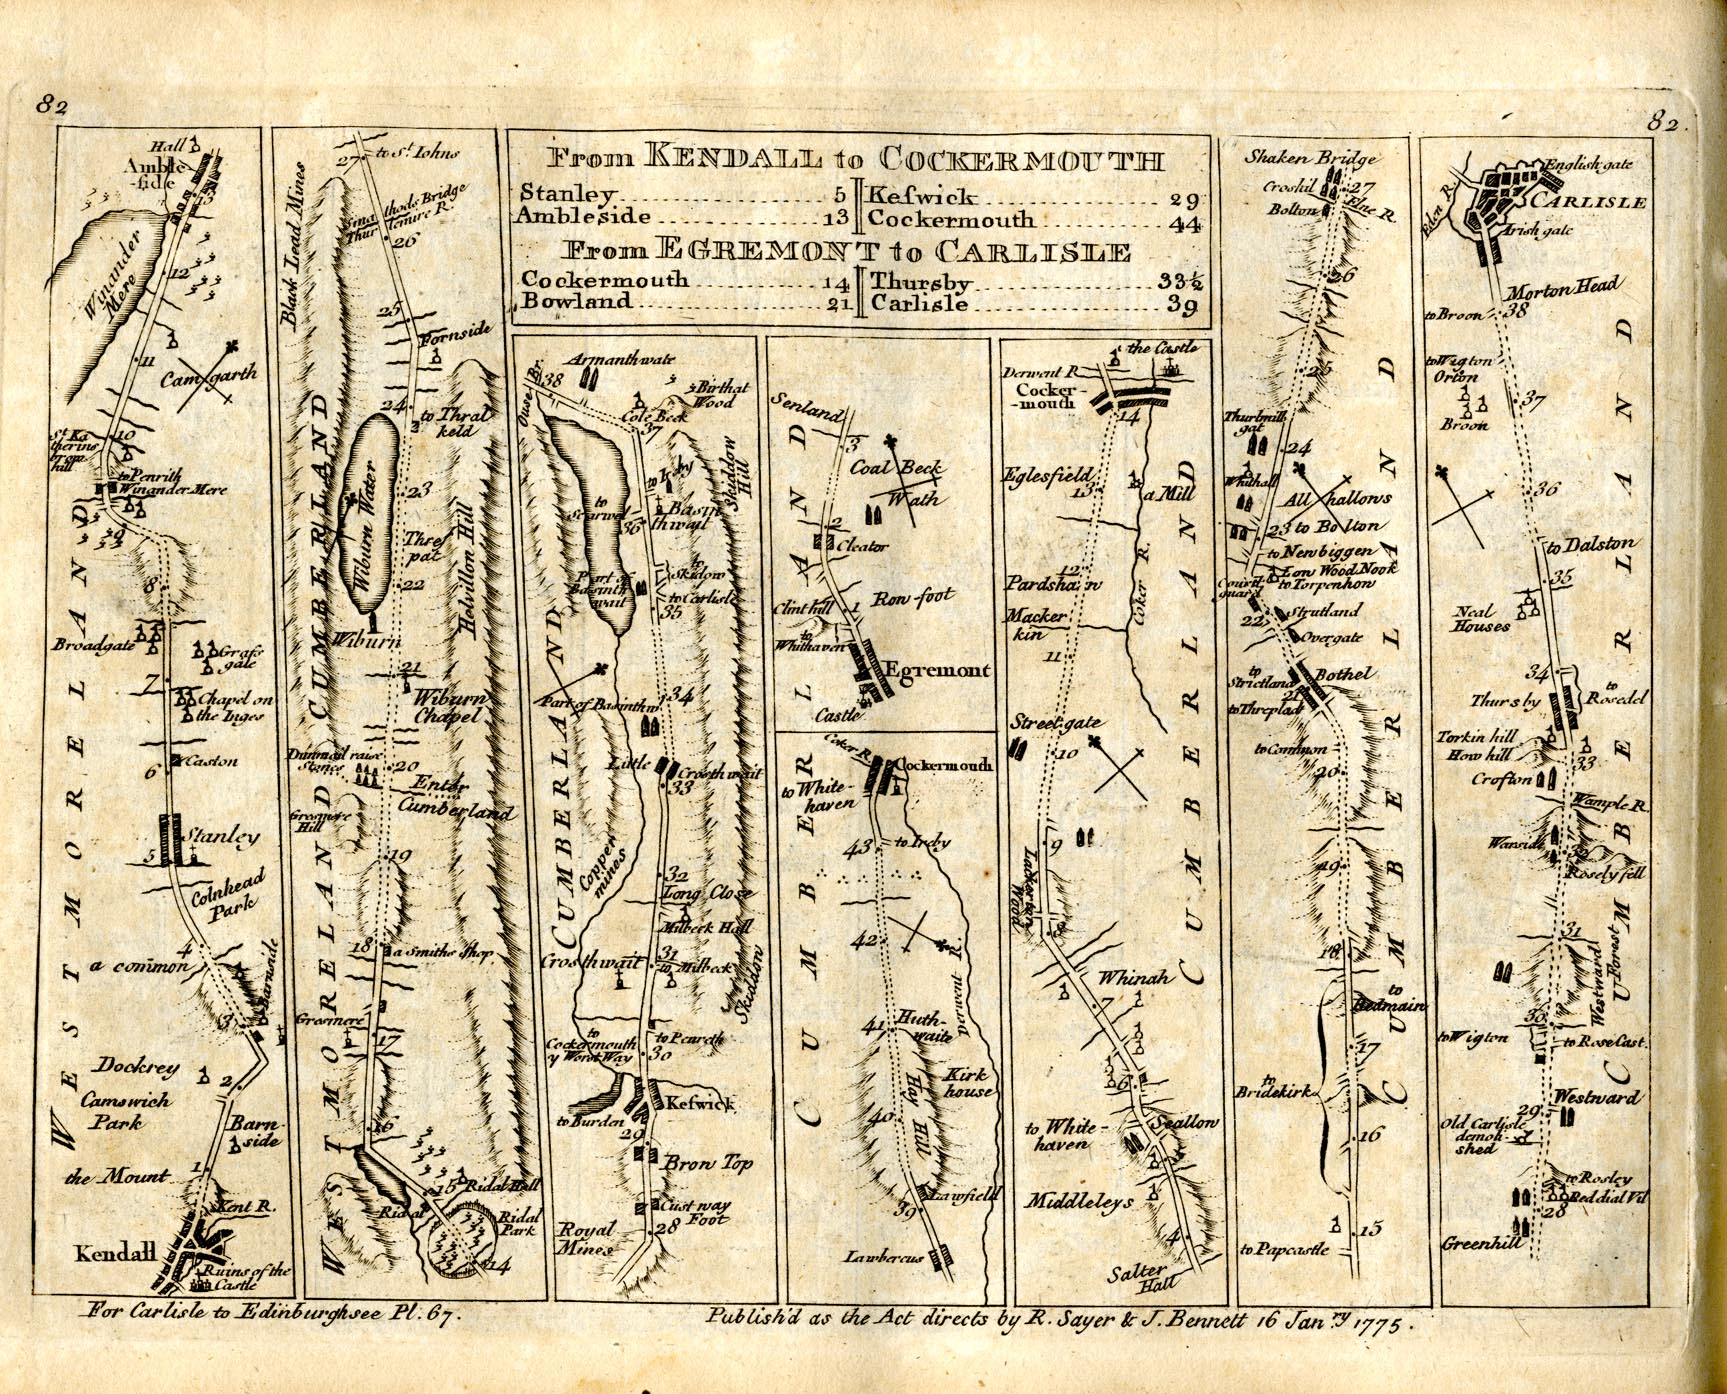 82
82.
From KENDALL to COCKERMOUTH
Stanley 5
Ambleside 13
Keswick 29
Cockermouth 44
From EGREMONT to CARLISLE
Cockermouth 14
Bowland 21
Thursby 33½
Carlisle 39
Hall
Amble-
-side
13
Winander
Mere
12
11
Camgarth
10
to Penrith
Winander Mere
9
8
Broadgate
Grass
gate
7
Chapel on
the Inges
Caston
6
Stanley
5
Colnhead
Park
4
a common
Barnside
3
Dockrey
2
Camswich
Park
Barn-
side
the Mount
1
Kent R.
Kendall
Ruins of the
Castle
WESTMORELAND
27
to St. Iohns
Black Lead Mines
26
25
Fornside
24
to Thral
keld
23
Wiburn Water
Thres
pat
22
Helvillon Hill
Wiburn
21
Wiburn
Chapel
Dunmail raise
Stones
20
Enter
Cumberland
19
18
a Smiths shop
Grasmere
17
16
15
Ridal Hall
Ridal
Ridal
Park
14
CUMBERLAND
WESTMORELAND
Armanthwate
Ouse Br.
38
Birthat
Wood
Cole Beck
37
Skiddow
Hill
36
Basin
thwait
to Carlisle
35
34
Part of Basinthw.
Little
Crosthwait
33
Copper
mines
32
Long Close
Milbeck Hall
Crosthwait
31
to Milbeck
Skiddon
to
Cockermouth
y Worst Way
to Penreth
30
Keswick
to Burden
29
Bron Top
Cust way
Foot
28
Royal
Mines
CUMBERLAND
Senland
3
Coal Beck
Wath
2
Cleator
Row-foot
Clint hill
1
to
Whithaven
Egremont
Castle
Coker R.
Cockermouth
to White-
haven
43
to Ireby
42
41
Huth-
waite
Derwent R.
Kirk
house
40
Hay Hill
Lawfield
39
Lawbercus
CUMBERLAND
the Castle
Derwent R
Cocker-
-mouth
14
Eglesfield
13
a Mill
12
Pardshawn
Coker R.
Macker
kin
11
Street gate
10
9
Whinah
7
6
to White-
haven
Seallon
Middleleys
4
Salter
Hall
CUMBERLAND
Shaken Bridge
Croshil
27
Bolton
Elne R.
26
25
24
Whithall
All hallows
23
to Bolton
to Newbiggen
Low Wood Nook
to Torpenhow
Strutland
22
Overgate
Bothel
to
Strictland
21
to Threplad
to Common
20
19
18
to
Redmain
17
to
Bridekirk
16
15
to Papcastle
CUMBERLAND
English gate
CARLISLE
Eden R.
Irish gate
Morton Head
to Broon
38
to Wigton
Orton
37
Broon
36
to Dalston
35
Neal
Houses
34
Thursby
to
Rosedel
Torkin hill
How hill
33
Crofton
Wample R.
Rosely fell
31
Westward
Forest
30
to Wigton
to Rose Cast.
Westward
29
Old Carlisle
demoli-
shed
to Rosley
Reddial Vil
28
Greenhill
CUMBERLAND
For Carlisle to Edinburgh see Pl. 67.
Publish'd as the Act directs by R. Sayer & J. Bennett 16 Jan.ry 1775.